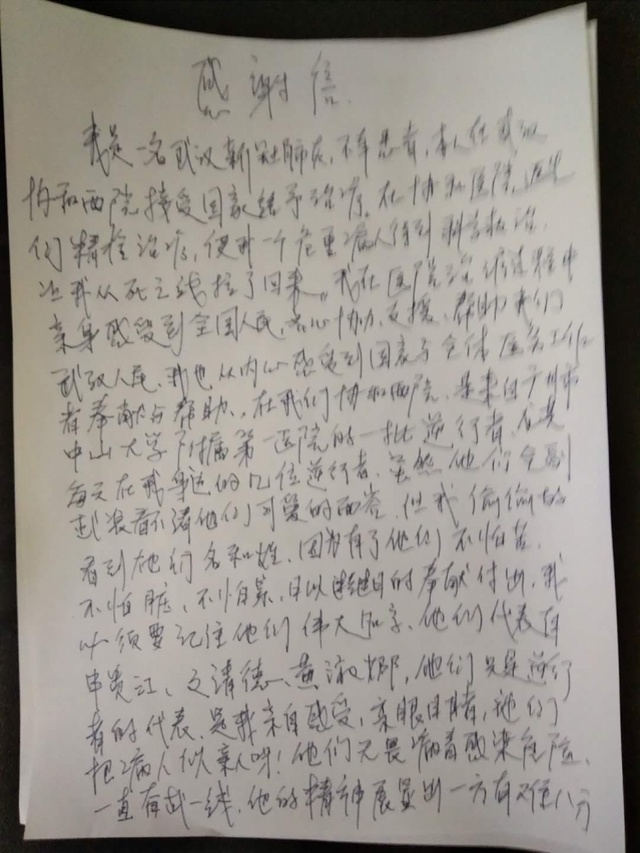 感谢信
我是一名武汉新冠肺炎,不幸患者,本人在武汉
协和西院接受国家给予治疗。在协和医院,医生
们精控治疗,使我一个危重病人得到科学救治,
让我从死亡线拉了回来,我在医院治疗过程中
亲身感受到全国人民,齐心协力,支援、帮助我们
武汉人民,我也从内心感受到国家与全体医务工作
者奉献与帮助。在我们协和西院,是来自广州市
中山大学附属第一医院的一批逆行者,尤其
每天在我身边的几位逆行者,虽然他们全副
武装看不清他们可爱的面容,但我偷偷的
看到他们名和姓,因为有了他们不怕苦、
不怕脏,不怕累,日以继日的奉献付出,我
必须要记住他们伟大名字,他们代表有
申贵江、文清德、黄淑娜,他们只是逆行
者的代表,是我亲自感受,亲眼目睹,她们
把病人似亲人呀!他们无畏病毒感染危险,
一直在战一线,他的精神展显出一方有难八方